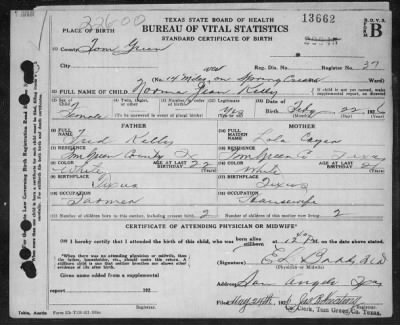 22600
TEXAS STATE BOARD OF HEALTH
BUREAU OF VITAL STATISTICS
STANDARD CERTIFICATE OF BIRTH
13662
B.O.V.S.
B
PLACE OF BIRTH
County Tom Green
City
Reg. Dis. No.
Register No. 37
No. 14 miles on Spring Creek Ward)
FULL NAME OF CHILD Norma Jean Kelly
Sex Female
Twin, triplet, or other?
Number, in order of birth
Legitimate? Yes
Date of Birth Feb 22 1926
FATHER
MOTHER
FULL NAME Fred Kelly
FULL MAIDEN NAME Lola
RESIDENCE Tom Green County
RESIDENCE Tom Green Co Texas
COLOR White
AGE AT LAST BIRTHDAY 22 (Years)
COLOR White
AGE AT LAST BIRTHDAY (Years)
BIRTHPLACE Texas
BIRTHPLACE Texas
OCCUPATION Farmer
OCCUPATION Housewife
Number of children born to this mother, including present birth 2
Number of children of this mother now living 2
CERTIFICATE OF ATTENDING PHYSICIAN OR MIDWIFE*
I hereby certify that I attended the birth of this child, who was born alive at M. on the date above stated.
stillborn
*When there was no attending physician or midwife, then the father, householder, etc., should make this return. A stillborn child is one that neither breathes nor shows other evidence of life after birth.
(Signature)
(Physician or Midwife)
Given name added from a supplemental report 192
Address San Angelo Texas
Clerk, Tom Green Co. Texas.